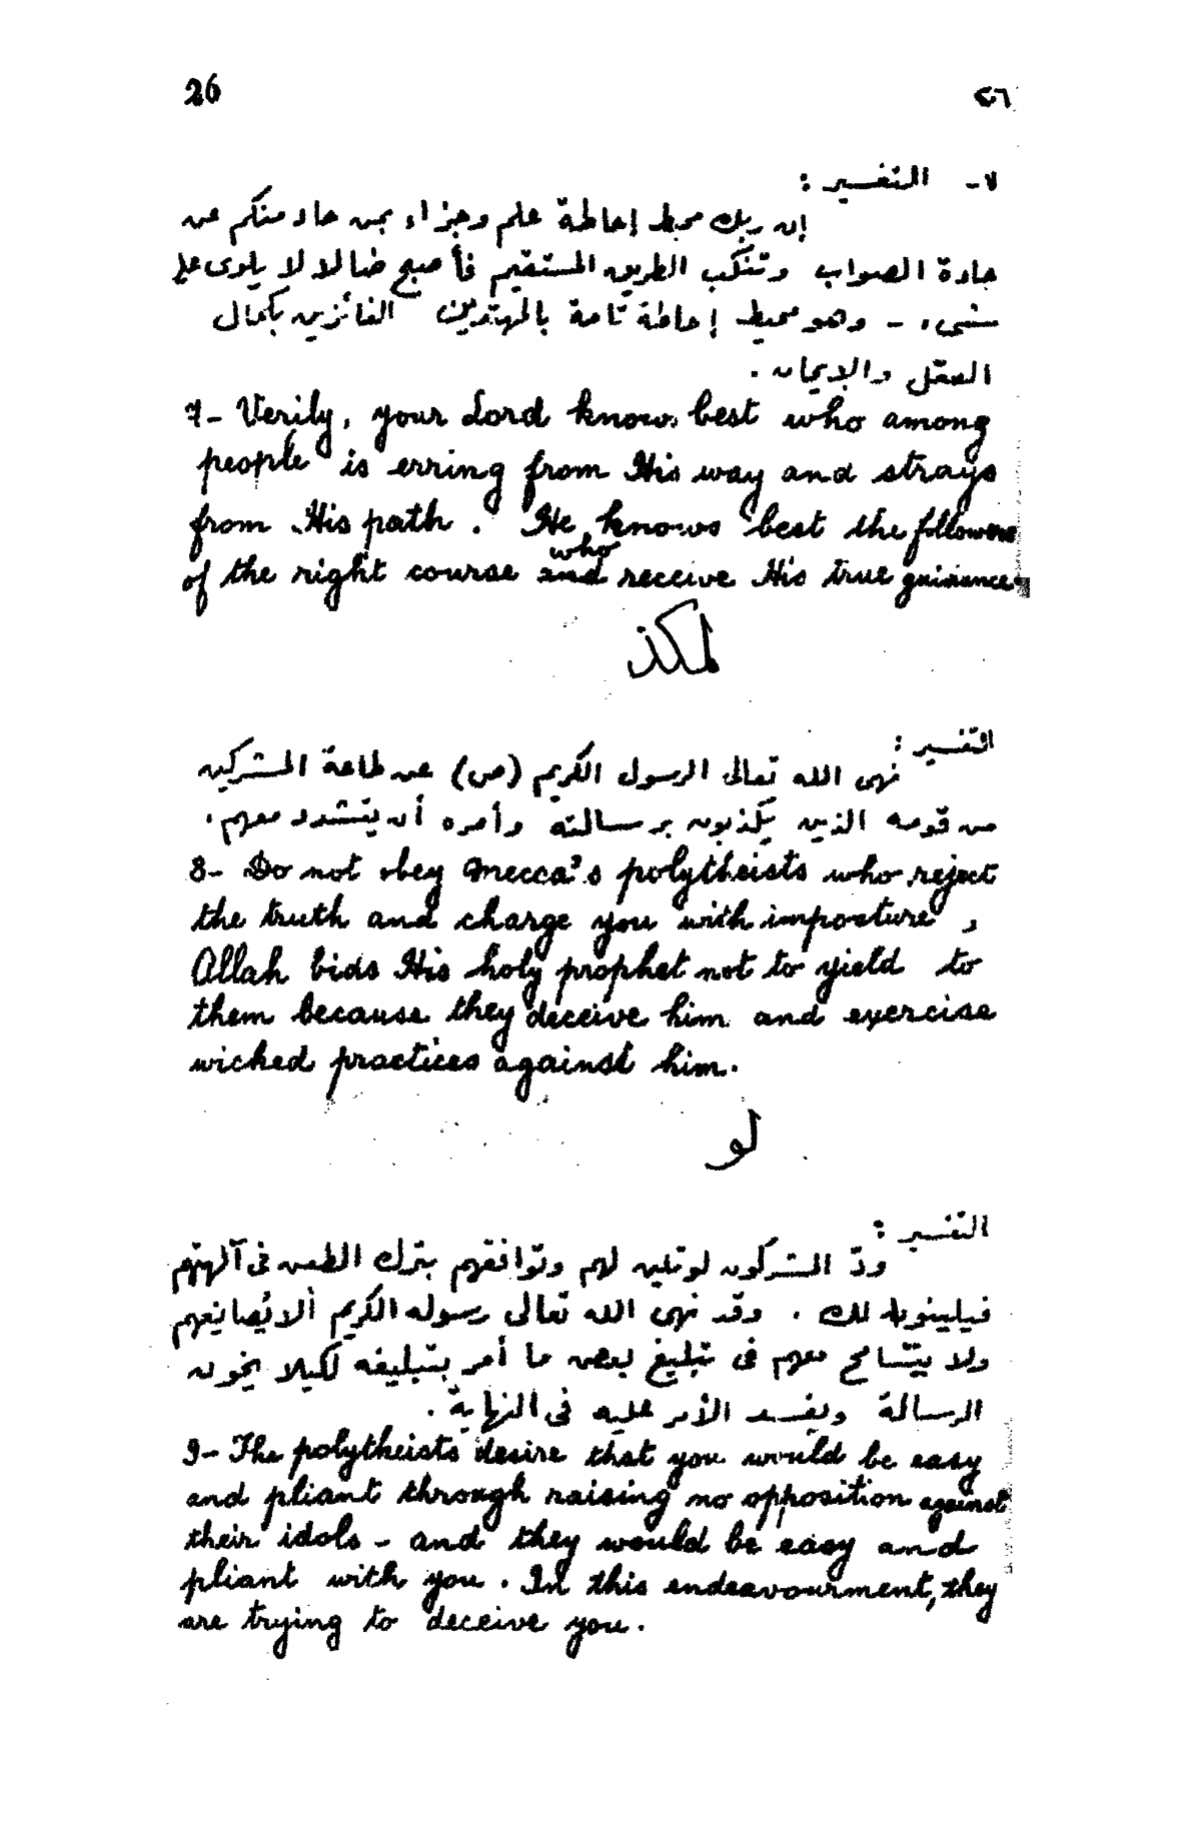 26 ٢٦
٧- التفسير :
إن ربك محيط إحاطة علم وجزاء بمن حاد منكم عن
جادة الصواب وتنكب الطريق المستقيم فأصبح ضالا لا يلوى على
شىء - وهو محيط إحاطة تامة بالمهتدين الفائزين بكمال
العقل والإيمان .
7- Verily, your Lord knows best who among
people is erring from His way and strays
from His path. He knows best the followers
who
of the right course and receive His true guidance.
التفسير :
نهى الله تعالى الرسول الكريم (ص) عن طاعة المشركين
من قومه الذين يكذبون برسالته وأمره أن يتشدد معهم .
8- Do not obey Mecca's polytheists who reject
the truth and charge you with imposture ,
Allah bids His holy prophet not to yield to
them because they deceive him and exercise
wicked practices against him.
لو
التفسير :
ودّ المشركون لو تلين لهم وتوافقهم بترك الطعن فى آلهتهم
فيلينون لك . وقد نهى الله تعالى رسوله الكريم ألا يُصانعهم
ولا يتسامح معهم فى تبليغ بعض ما أمر بتبليغه لكيلا يخون
الرسالة ويفسد الأمر عليه فى النهاية .
9- The polytheists desire that you would be easy
and pliant through raising no opposition against
their idols - and they would be easy and
pliant with you . In this endeavourment, they
are trying to deceive you .